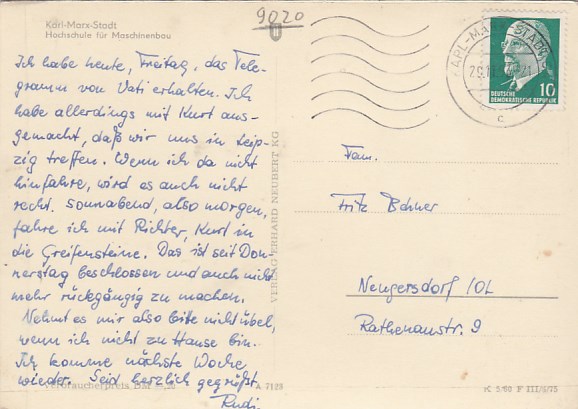 9020
Karl-Marx-Stadt
Hochschule für Maschinenbau
Ich habe heute, Freitag, das Tele-
gramm von Vati erhalten. Ich
habe allerdings mit Kurt aus-
gemacht, daß wir uns in Leip-
zig treffen. Wenn ich da nicht
hinfahre, wird es auch nicht
recht. Sonnabend, also morgen,
fahre ich mit Richter, Kurt in
die Greifensteine. Das ist seit Don-
nerstag beschlossen und auch nicht
mehr rückgängig zu machen.
Nehmt es mir also bitte nicht übel,
wenn ich nicht zu Hause bin.
Ich komme nächste Woche
wieder. Seid herzlich gegrüßt.
Rudi
Verbraucherpreis
A 7129
VERLAG ERHARD NEUBERT KG
KARL-MARX-STADT
c
10
DEUTSCHE
DEMOKRATISCHE REPUBLIK
Fam.
Fritz
Neugersdorf /OL
Rathenaustr. 9
K 5/60 F III/6/75